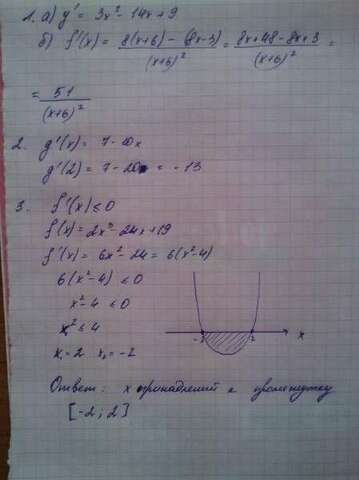 1. а) y' = 3x² - 14x + 9
б) f'(x) = 8(x+6) - (8x-3) / (x+6)² = 8x + 48 - 8x + 3 / (x+6)² =
= 51 / (x+6)²
2. g'(x) = 7 - 10x
g'(2) = 7 - 20 = -13
3. f'(x) ≤ 0
f(x) = 2x³ - 24x + 19
f'(x) = 6x² - 24 = 6(x² - 4)
6(x² - 4) ≤ 0
x² - 4 ≤ 0
x² ≤ 4
x₁ = 2 x₂ = -2
-2 2 x
Ответ: x принадлежит к промежутку
[-2; 2]